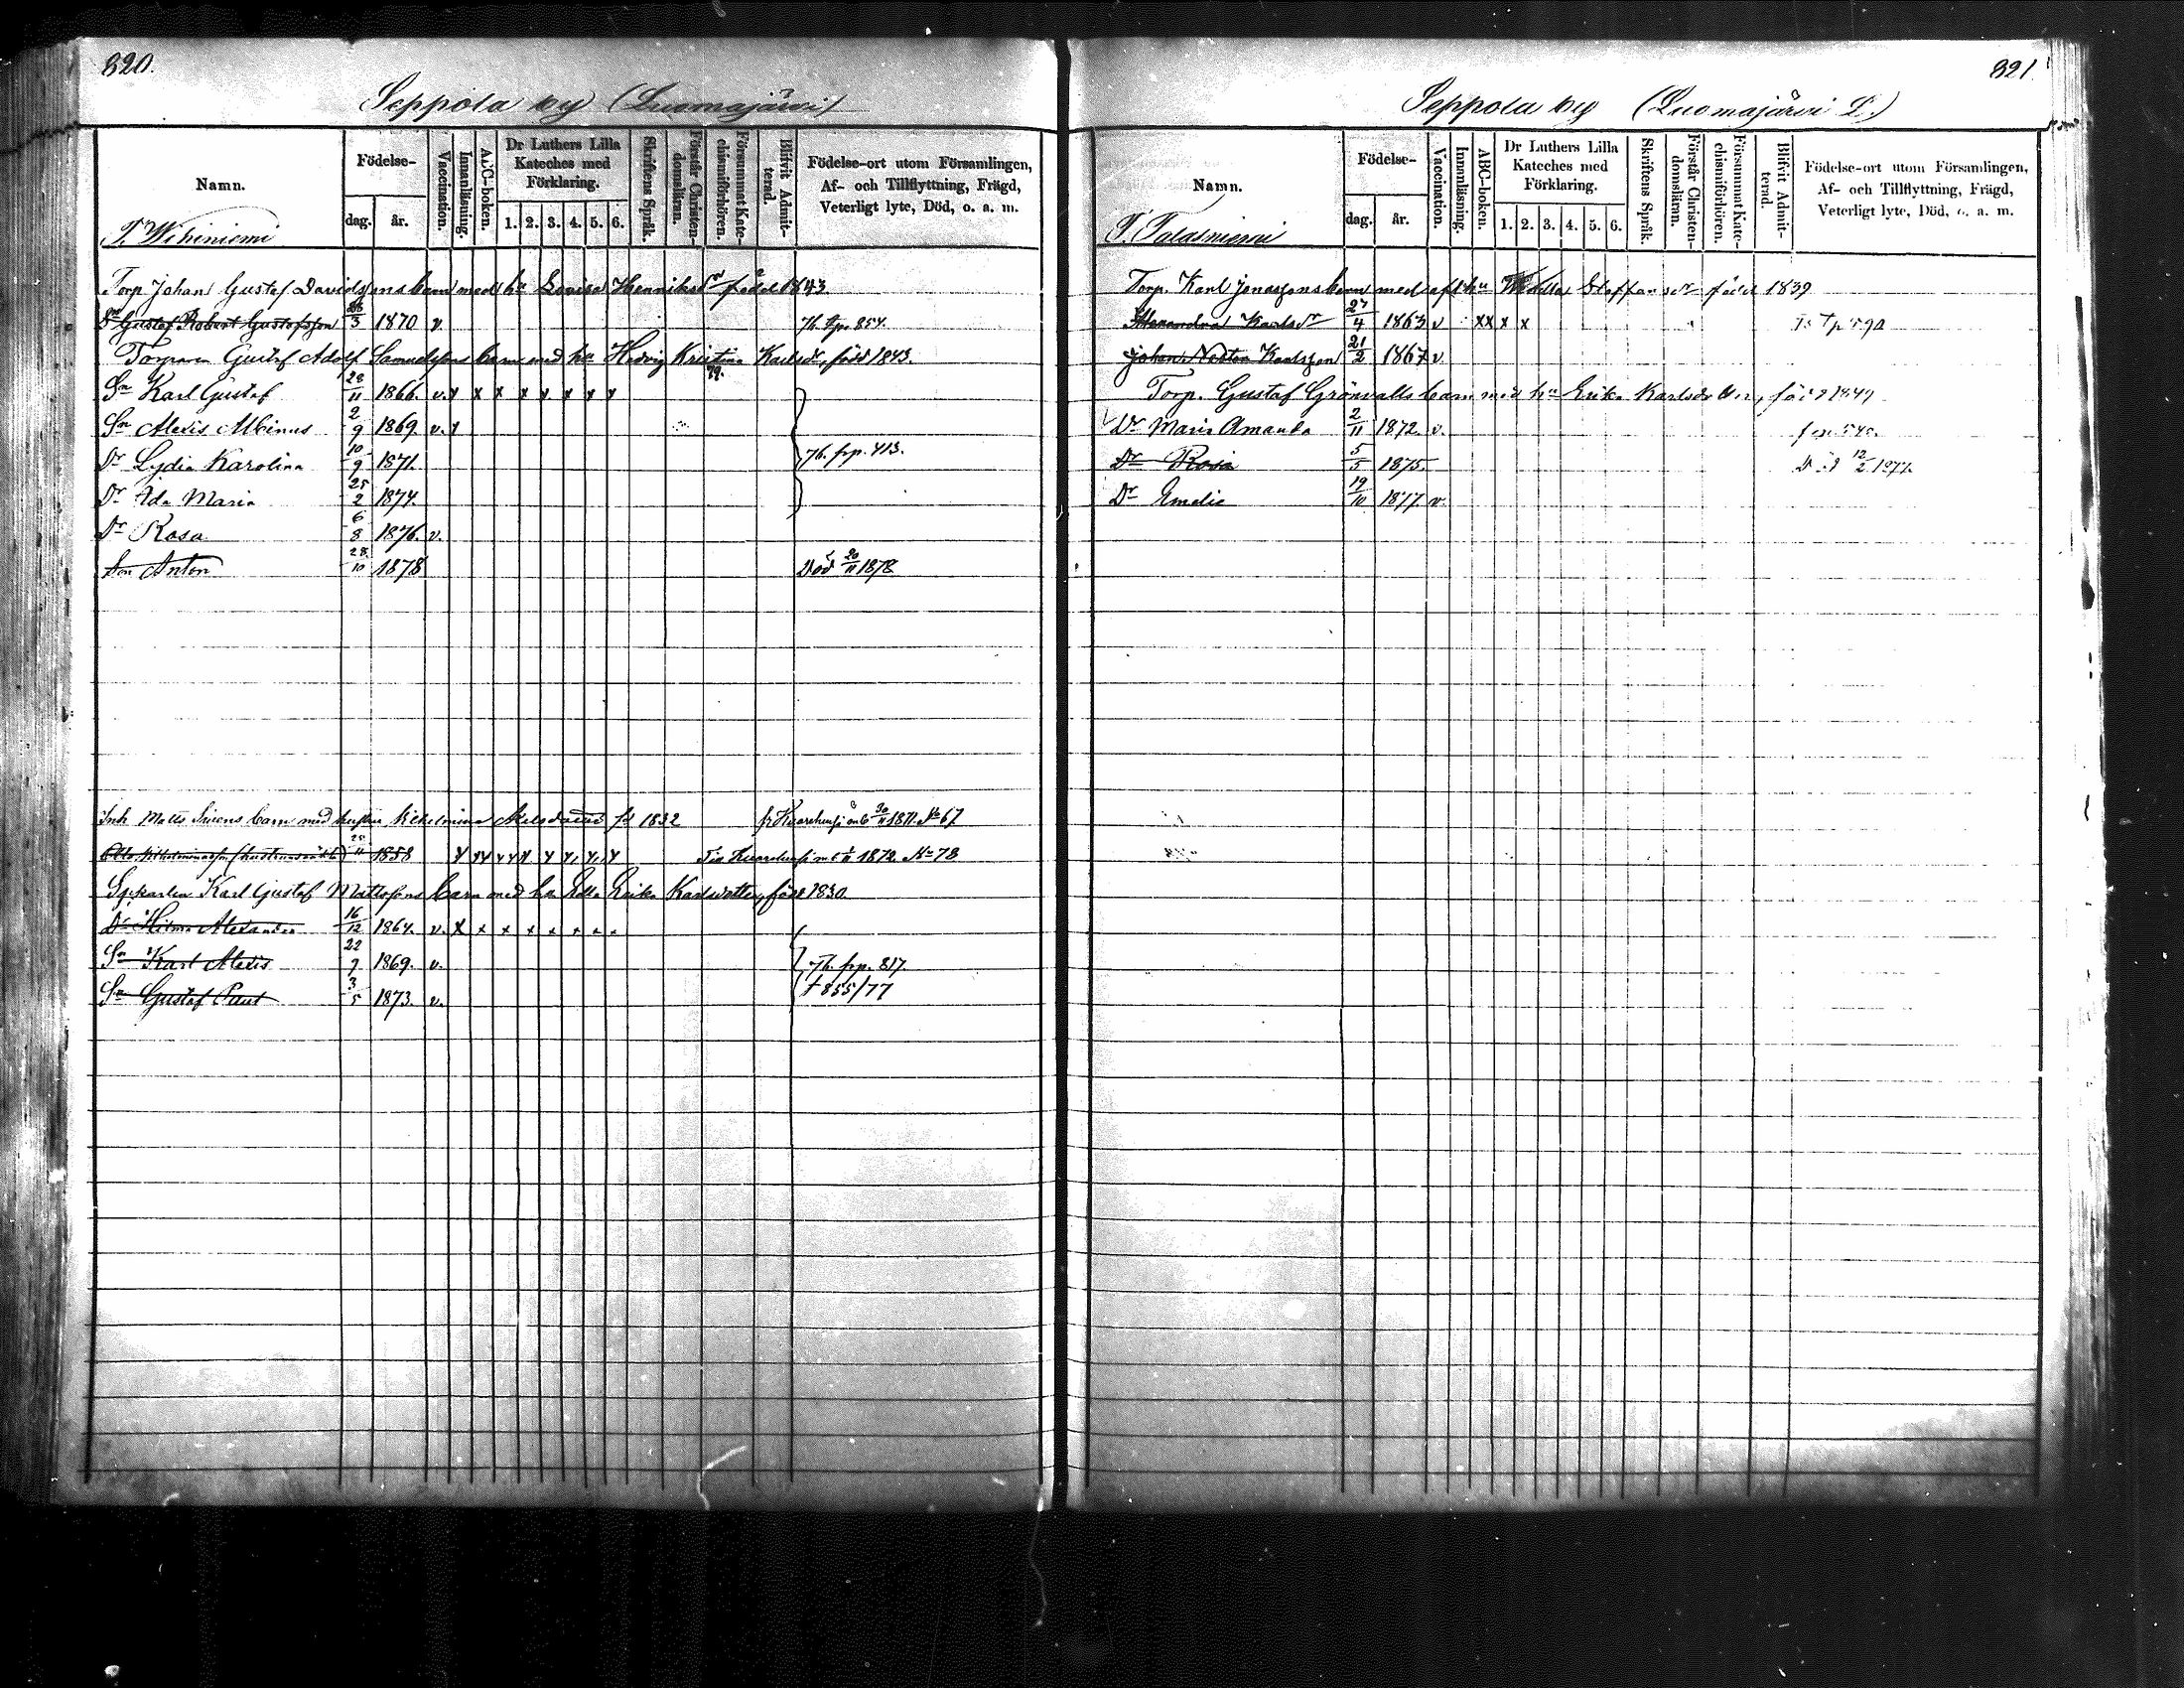 820.
Seppola by (Luomajärvi)
Namn.
Födelse-
dag.
år.
Vaccination.
Innanläsning.
ABC-boken.
Dr Luthers Lilla
Kateches med
Förklaring.
1. 2. 3. 4. 5. 6.
Skriftens Språk.
Förstår Christen-
domsläran.
Försummat Kate-
chismiförhören.
Blifvit Admit-
terad.
Födelse-ort utom Församlingen,
Af- och Tillflyttning, Frägd,
Veterligt lyte, Död, o. a. m.
T. Wihiniemi
Torp Johan Gustaf Davidssons barn med hu Lovisa Henriksdr född 1843
Sn Gustaf Robert Gustafsson 3 1870 v. Th. frp. 854.
Torparen Gustaf Adolf Samuelssons barn med hu Hedvig Kristina Karlsdr, född 1843.
79.
Sn Karl Gustaf 28/11 1866. v. x x x x x x x x
Sn Alexis Albinus 2/9 1869 v. x
Dr Lydia Karolina 10/9 1871. Th. frp. 413.
Dr Ida Maria 25/2 1874.
Dr Rosa 6/8 1876. v.
Son Anton 28/10 1878 Död 20/11 1878
Inh Matts Sirens barn med hustru Vilhelmina Axelsdotter fd 1832 fr 30/11 1871. No 67
1858 1872 No 78
Karl Gustaf Mattssons barn med hu Edla Erika Karlsdotter, född 1830.
Dr Hilma Alexandra 16/12 1864. v. x x x x x x x x
Sn Karl Alexis 22/7 1869. v. Th. frp. 817.
Sn Gustaf Paul 3/5 1873. v. + 855/77
821
Seppola by (Luomajärvi L.)
Namn.
Födelse-
dag.
år.
Vaccination.
Innanläsning.
ABC-boken.
Dr Luthers Lilla
Kateches med
Förklaring.
1. 2. 3. 4. 5. 6.
Skriftens Språk.
Förstår Christen-
domsläran.
Försummat Kate-
chismiförhören.
Blifvit Admit-
terad.
Födelse-ort utom Församlingen,
Af- och Tillflyttning, Frägd,
Veterligt lyte, Död, o. a. m.
T. Talasniemi
Torp. Karl Jonassons barn med afl hu Staffansdr född 1839
Alexandra Karlsdr 27/4 1863 v xx x x
Johan Nestor Karlsson 21/2 1867 v.
Torp. Gustaf Grönvalls barn med hu Erika Karlsdr född 1849
Dr Maria Amanda 2/11 1872. v.
Dr Rosa 5/5 1875. Död 12/2 1877.
Dr Emelie 19/10 1877. v.